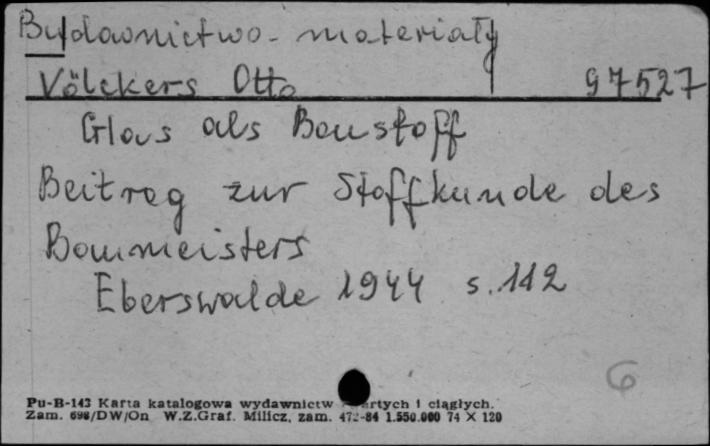 Budownictwo - materiały
Völckers Otto 97527
Glas als Baustoff
Beitrag zur Stoffkunde des
Baumeisters
Eberswalde 1944 s. 112
6
Pu-B-143 Karta katalogowa wydawnictw i ciągłych.
Zam. 698/DW/On W.Z.Graf. Milicz, zam. 472-84 1.550.000 74 X 120